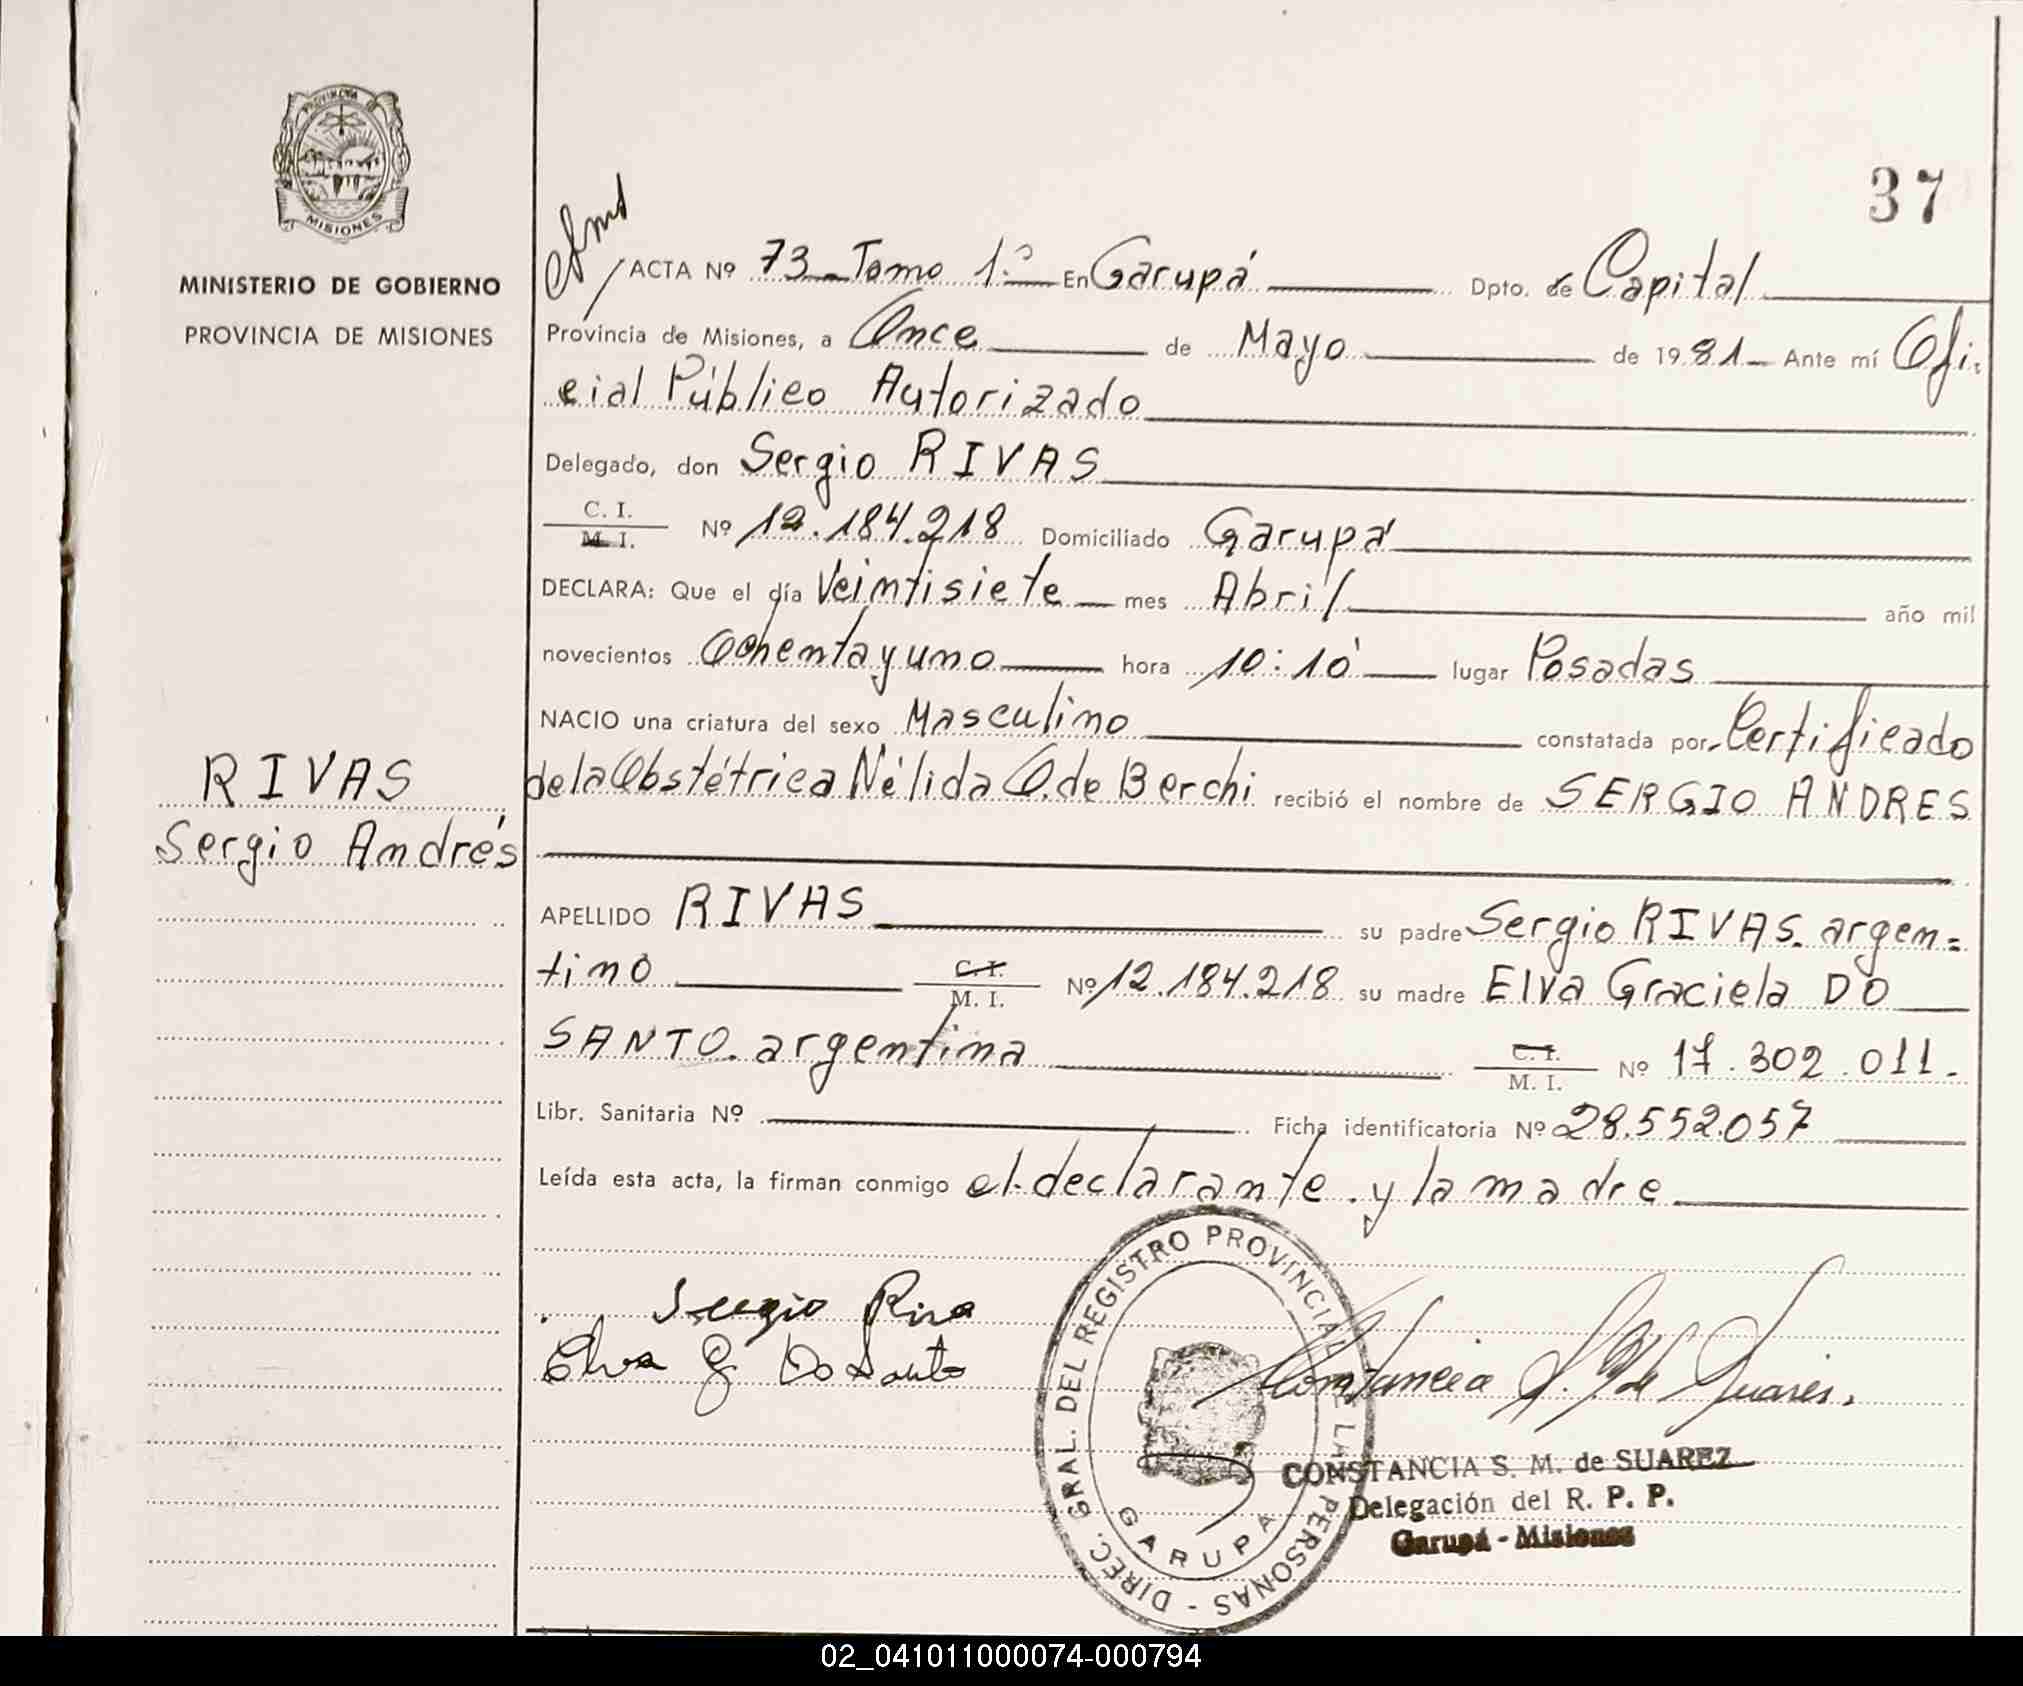 PROVINCIA
MISIONES
MINISTERIO DE GOBIERNO
PROVINCIA DE MISIONES
RIVAS
Sergio Andrés
37
ACTA Nº 73 Tomo 1.º En Garupá Dpto. de Capital
Provincia de Misiones, a Once de Mayo de 1981 Ante mí Ofi-
cial Público Autorizado
Delegado, don Sergio RIVAS
C. I.
M. I. Nº 12.184.218 Domiciliado Garupá
DECLARA: Que el día Veintisiete mes Abril año mil
novecientos Ochenta y uno hora 10:10 lugar Posadas
NACIO una criatura del sexo Masculino constatada por Certificado
de la Obstétrica Nélida O. de Berchi recibió el nombre de SERGIO ANDRES
APELLIDO RIVAS su padre Sergio RIVAS. argen=
tino C. I. M. I. Nº 12.184.218 su madre Elva Graciela DO
SANTO. argentina C. I. M. I. Nº 17.302.011.
Libr. Sanitaria Nº Ficha identificatoria Nº 28.552.057
Leída esta acta, la firman conmigo el declarante y la madre
Sergio Riva
Elva G Do Santo
Constancia S. M de Suarez.
DIREC. GRAL. DEL REGISTRO PROVINCIAL DE LAS PERSONAS -
GARUPA
CONSTANCIA S. M. de SUAREZ
Delegación del R. P. P.
Garupá - Misiones
02_041011000074-000794